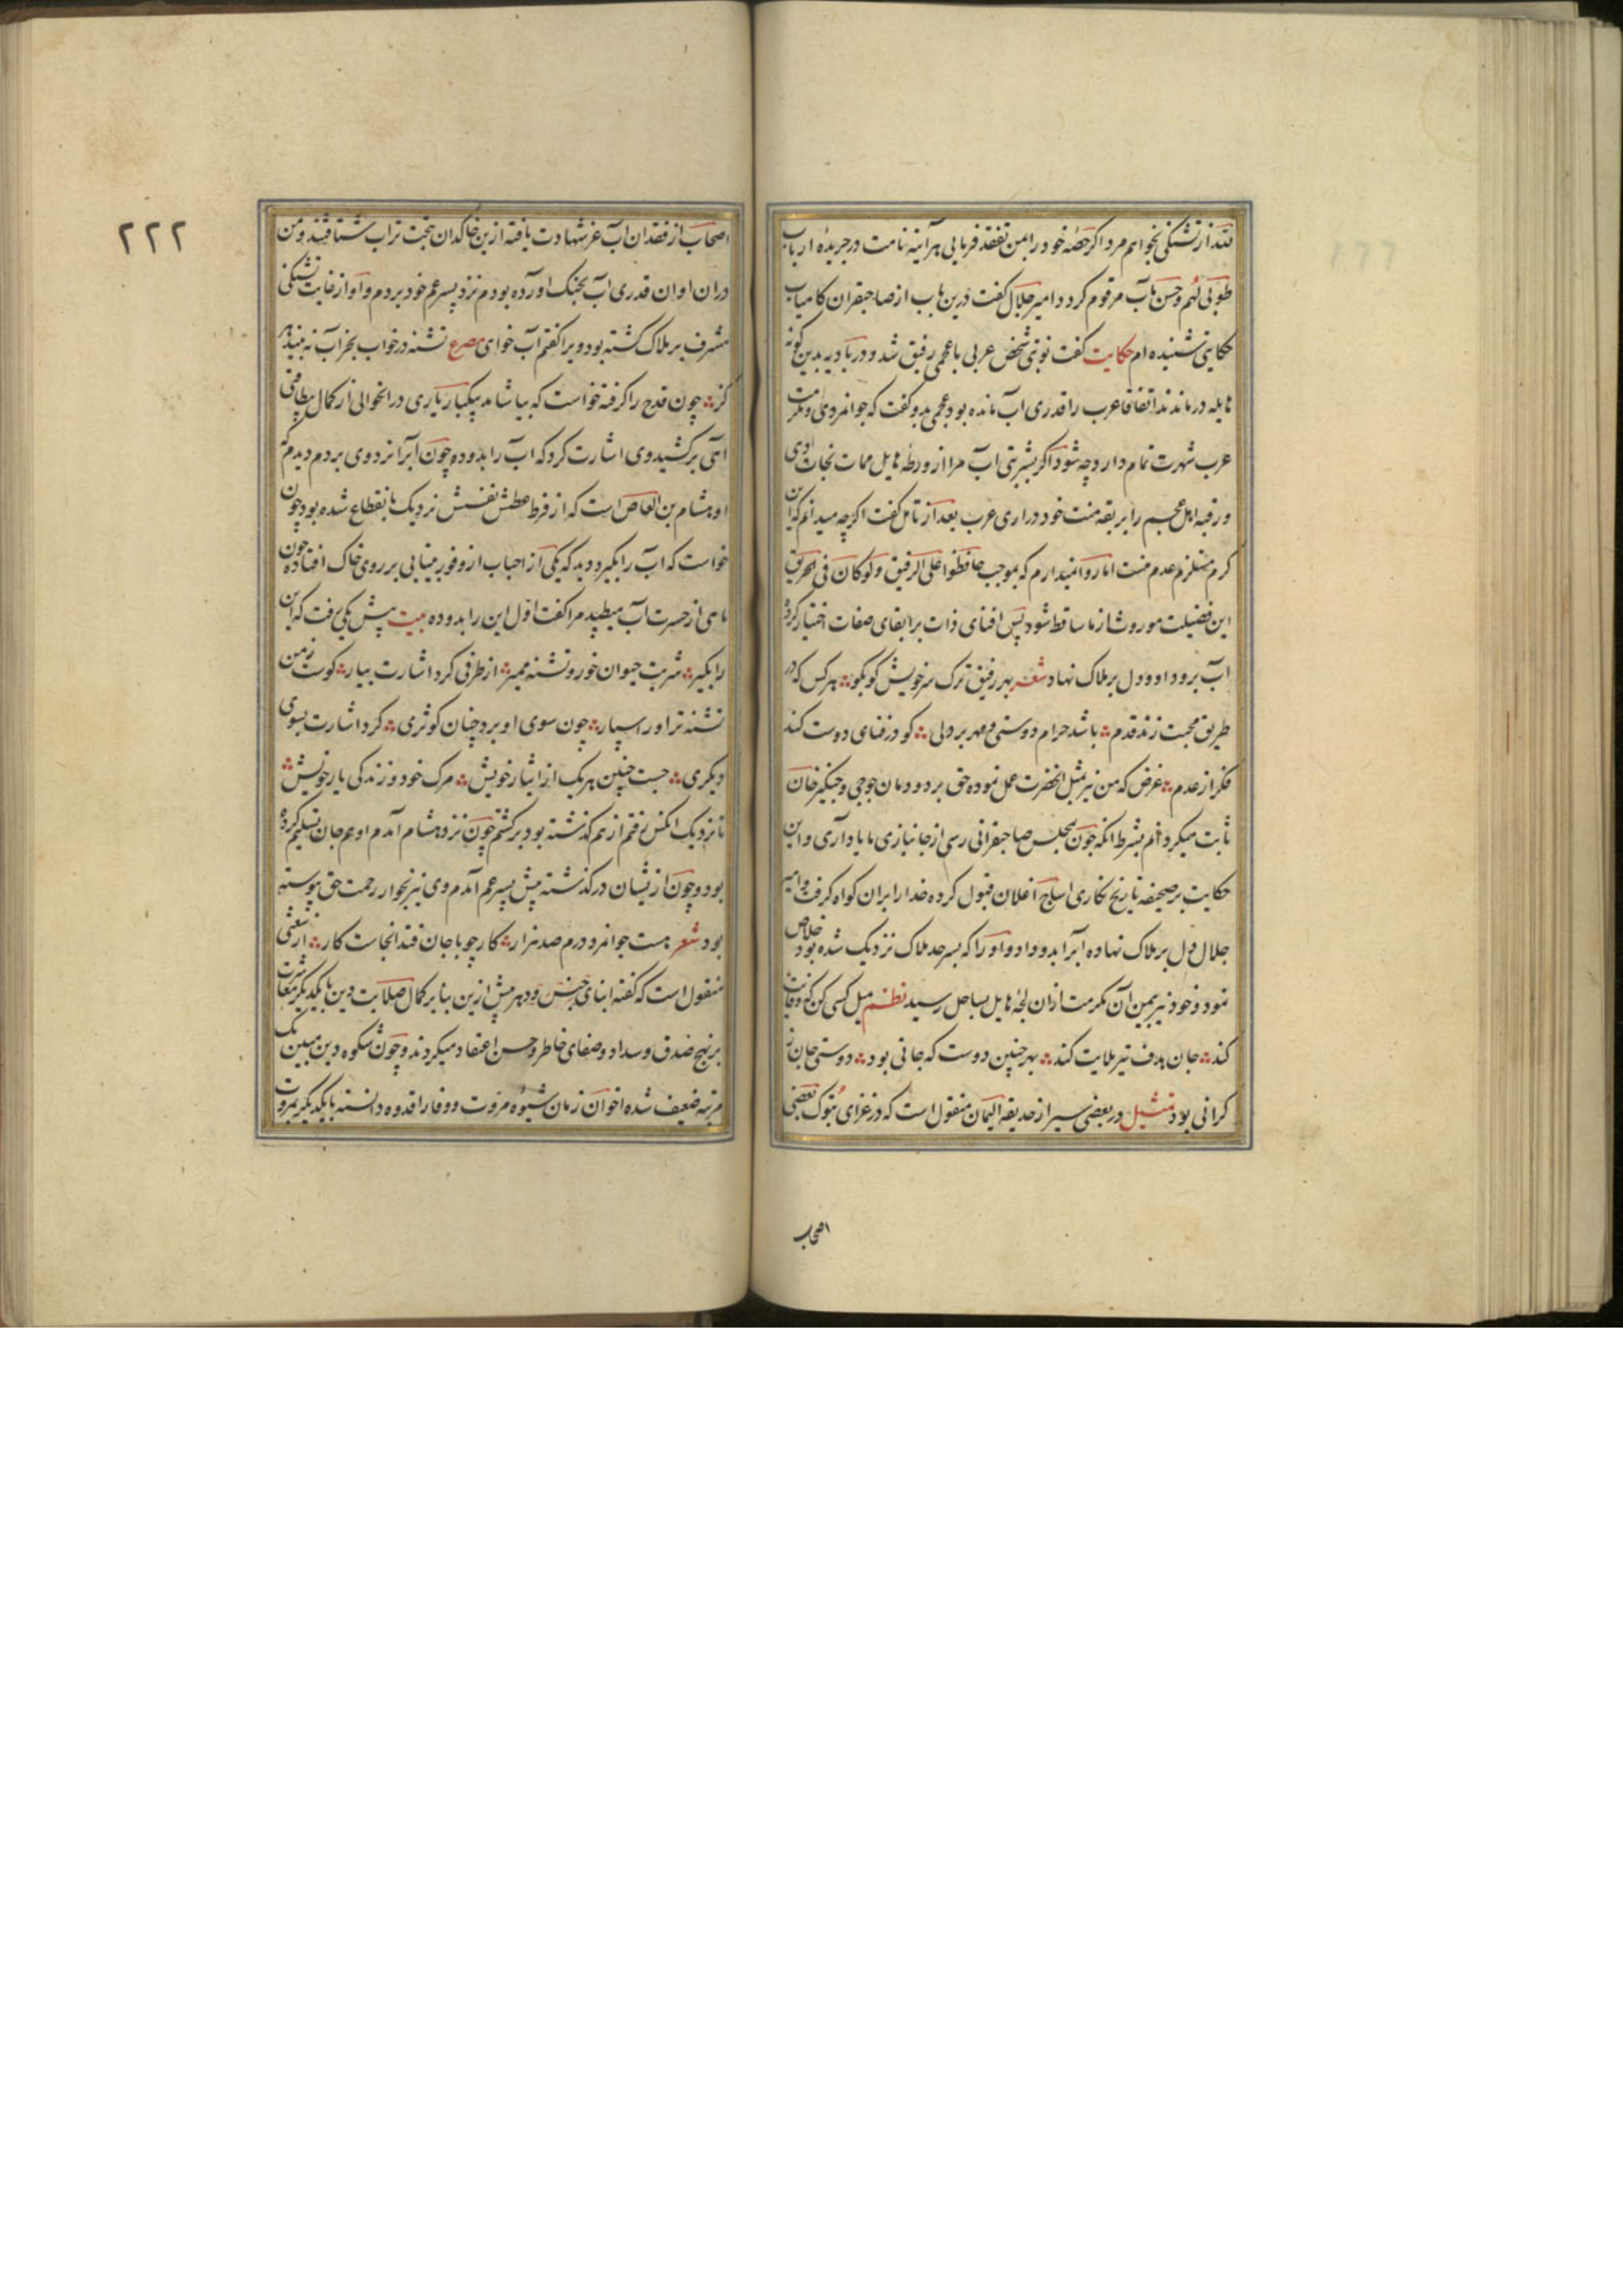 فتد از تشنگی نخواهم مرد اگر حصّه خود را بمن تفقد فرمایی هر آینه نامت در جریدهٔ ارباب
طوبی لهم وحسن مآب مرقوم کردد امیر جلال گفت درین باب از صاحبقران کامیاب
حکایتی شنیده ام حکایت گفت نوبتی شخص عربی با عجمی رفیق شد و در بادیه بدین گونه
هایله درماندند اتفاقا عرب را قدری آب مانده بود عجمی بدو گفت که جوانمردی و مکرمت
عرب شهرت تمام دارد چه شود اگر بشربتی آب مرا از ورطهٔ هایل ممات نجات دهی
و رقبه اهل عجم را بربقه منت خود در آری عرب بعد از تامل گفت اگرچه میدانم که این
کرم مستلزم عدم منست اما روا نمیدارم که بموجب حافظوا علی الرفیق ولو کان فی الحریق
این فضیلت موروث از ما ساقط شود پس افنای ذات بر ابقای صفات اختیار کرده
آب برو داد و دل بر هلاک نهاد شعر بهر رفیق ترک سر خویش کو بکو هر کس که در
طریق محبت زند قدم باشد حرام دوستی و مهر بر دلی کو در فنای دوست کند
فکر از عدم غرض که من نیز مثل آنحضرت عمل نموده حق بر دودمان جوجی و چنکیز خان
ثابت میکردانم بشرط آنکه چون بمجلس صاحبقرانی رسی از جانبازی ما یاد آری و این
حکایت بر صحیفه تاریخ نکاری اسلاج اغلان قبول کرده خدا را بران کواه کرفت و امیر
جلال دل بر هلاک نهاده آبرا بدو داد و او را که بسرحد هلاک نزدیک شده بود خلاص
نمود و خود نیز بیمن آن مکرمت ازان لجّهٔ هایل بساحل رسید نظم میل کسی کن که وفایت
کند جان هدف تیر بلایت کند بهر چنین دوست که جانی بود دوستی جان ز
کرانی بود تمثیل در بعضی سیر از حدیقة الیمان منقول است که در غزای تبوک بعضی
اصحاب
۲۲۲
اصحاب از فقدان آب عز شهادت یافته ازین خاکدان بتحت تراب شتافتند و من
دران اوان قدری آب بچنک آورده بودم نزد پسر عم خود بردم و او از غایت تشنکی
مشرف بر هلاک کشته بود ویرا گفتم آب خوای مصرع تشنه در خواب بجز آب نه بیند هر
کز چون قدح را کرفته خواست که بیاشامد بیکبار یاری در انحوالی از کمال بیطاقتی
آهی برکشید وی اشارت کرد که آب را بدو ده چون آبرا نزد وی بردم دیدم که
او هشام بن العاص است که از فرط عطش نفسش نزدیک بانقطاع شده بود چون
خواست که آب را بکیرد دید که یکی از احباب از وفور بیتابی بر روی خاک افتاده چون
ماهی از حسرت آب میطپید مرا گفت اول این را بدو ده بیت پیش یکی رفت که این
را بکیر شربت حیوان خور و تشنه ممیر از طرفی کرد اشارت بیار کوست ز من
تشنه تر او را سپار چون سوی او برد چنان کوثری کرد اشارت بسوی
دیکری جست چنین هر یک از ایثار خویش مرک خود و زندکی یار خویش
تا نزدیک آنکس رفتم از هم کذشته بود برکشتم چون نزد هشام آمدم او هم جان تسلیم کرده
بود و چون از یشان درکذشته پیش پسر عم آمدم وی نیز بجوار رحمت حق پیوسته
بود شعر هست جوانمرد درم صد هزار کار چو با جان فتد انجاست کار از شعبی
منقول است که گفته ابنای جنس خود هر پیش ازین بنا بر کمال صلابت دین با یکدیکر معاشرت
بر نهج صدق و سداد و صفای خاطر و حسن اعتقاد میکردند و چون شکوه دین مبین یک
مرتبه ضعیف شده اخوان زمان شیوه مروت و وفا را قدوه دانسته با یکدیکر بمروت